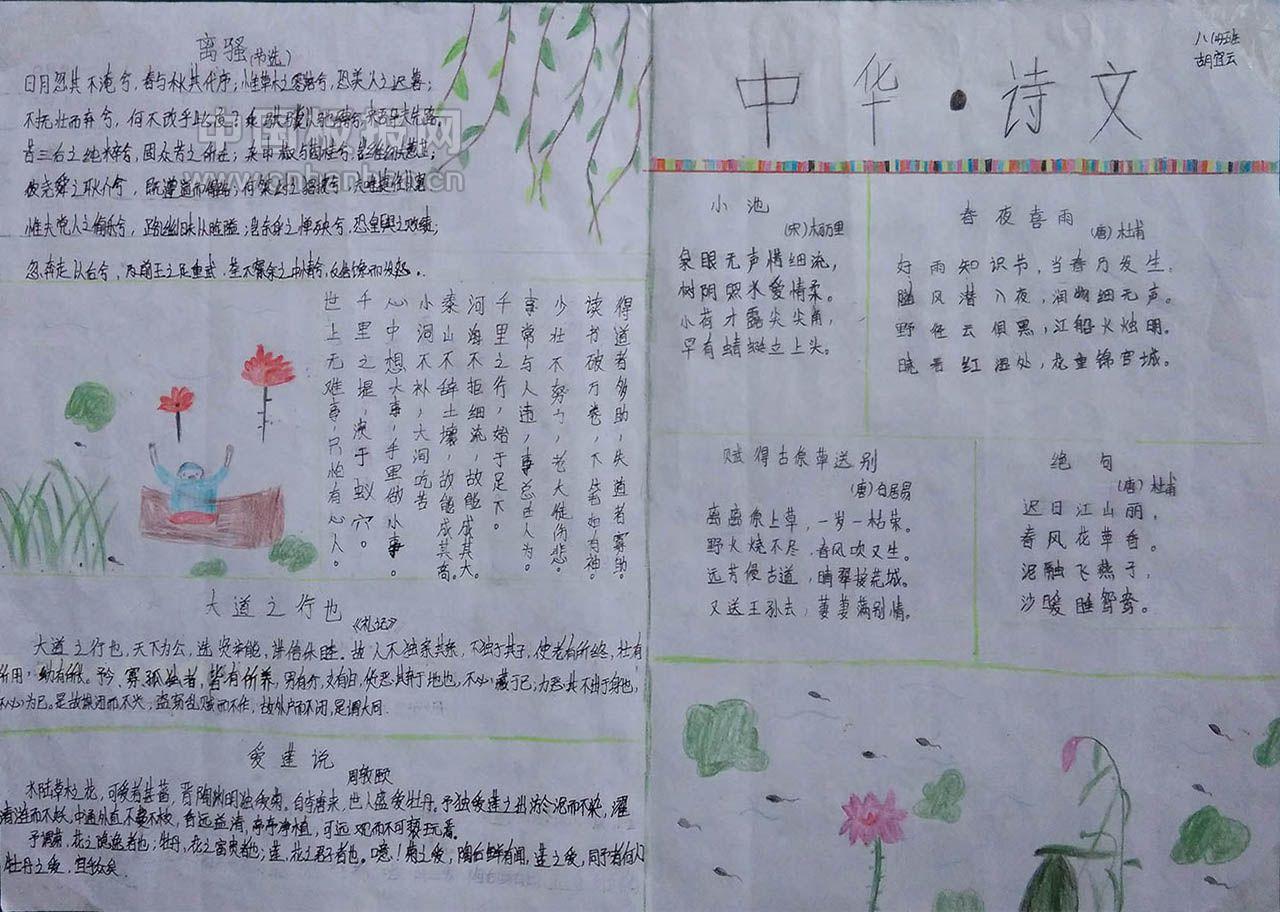 离骚(节选)
日月忽其不淹兮,春与秋其代序;惟草木之零落兮,恐美人之迟暮;
不抚壮而弃兮,何不改乎此度?乘骐骥以驰骋兮,来吾导夫先路。
昔三后之纯粹兮,固众芳之所在;
彼尧舜之耿介兮,既遵道而得路;
惟夫党人之偷乐兮,路幽昧以险隘;岂余身之惮殃兮,恐皇舆之败绩;
忽奔走以
得道者多助,失道者寡助。
读书破万卷,下笔如有神。
少壮不努力,老大徒伤悲。
事常与人违,事总在人为。
千里之行,始于足下。
河海不拒细流,故能成其大。
泰山不辞土壤,故能成其高。
小洞不补,大洞吃苦
心中想大事,手里做小事。
千里之堤,溃于蚁穴。
世上无难事,只怕有心人。
大道之行也
《礼记》
大道之行也,天下为公,选贤举能,讲信休睦。故人不独亲其亲,不独子其子,使老有所终,壮有
所用,幼有所长。矜、寡孤独者,皆有所养,男有分,女有归,货恶其弃于地也,不必藏于己;力恶其不出于身也,
不必为己。是故谋闭而不兴,盗窃乱贼而不作,故外户而不闭,是谓大同.
爱莲说
周敦颐
水陆草木之花,可爱者甚蕃,晋陶渊明独爱菊。自李唐来,世人盛爱牡丹。予独爱莲之出淤泥而不染,濯
清涟而不妖,中通外直,不蔓不枝,香远益清,亭亭净植,可远观而不可亵玩焉。
予谓菊,花之隐逸者也;牡丹,花之富贵者也;莲,花之君子者也。噫!菊之爱,陶后鲜有闻,莲之爱,同予者何人
牡丹之爱,宜乎众矣.
八(4)班
胡宜云
中华·诗文
小池
(宋)杨万里
泉眼无声惜细流,
树阴照水爱情柔。
小荷才露尖尖角,
早有蜻蜓立上头。
春夜喜雨
(唐)杜甫
好雨知识节,当春乃发生。
随风潜入夜,润物细无声。
野径云俱黑,江船火烛明。
晓看红湿处,花重锦官城。
赋得古原草送别
(唐)白居易
离离原上草,一岁一枯荣。
野火烧不尽,春风吹又生。
远芳侵古道,晴翠接荒城。
又送王孙去,萋萋满别情。
绝句
(唐)杜甫
迟日江山丽,
春风花草香。
泥融飞燕子,
沙暖睡鸳鸯。
中国树报网